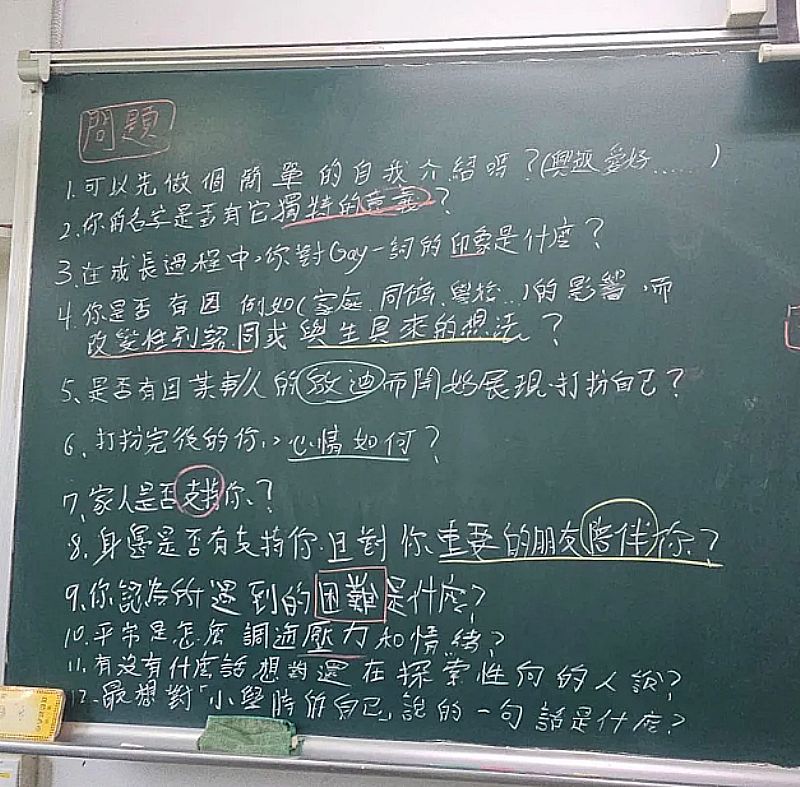 問題
1. 可以先做個簡單的自我介紹嗎？(興趣、愛好……)
2. 你的名字是否有它獨特的意義？
3. 在成長過程中，你對Gay一詞的印象是什麼？
4. 你是否有因 例如(家庭、同儕、學校…)的影響，而
改變性別認同或與生具來的想法？
5、是否有因某事/人的啟迪而開始展現、打扮自己？
6、打扮完後的你，心情如何？
7、家人是否支持你、？
8、身邊是否有支持你、且對你重要的朋友陪伴你？
9、你認為所遇到的困難是什麼？
10、平常是怎麼調適壓力和情緒？
11、有沒有什麼話想對還在探索性向的人說？
12、最想對「小學時的自己」說的一句話是什麼？